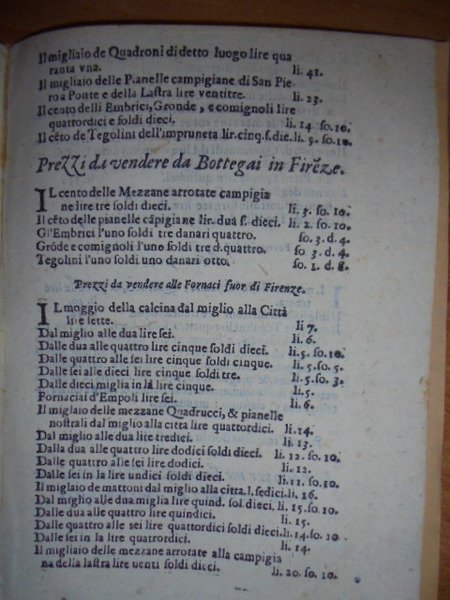 Il migliaio de Quadroni di detto luogo lire qua
ranta vna. li. 41.
Il migliaio delle Pianelle campigiane di San Pie
ro a Ponte e della Lastra lire ventitre. li. 23.
Il cento delli Embrici, Gronde, e comignoli lire
quattordici e soldi dieci. li. 14. so. 10.
Il cēto de Tegolini dell'impruneta lir. cinq. s. die. li. 5. so. 10.
Prezzi da vendere da Bottegai in Firēze.
IL cento delle Mezzane arrotate campigia
ne lire tre soldi dieci. li. 3. so. 10.
Il cēto delle pianelle cāpigiane lir. dua s. dieci. li. 2. so. 10.
Gl'Embrici l'uno soldi tre danari quattro. so. 3. d. 4.
Grōde e comignoli l'uno soldi tre d. quattro. so. 3. d. 4.
Tegolini l'uno soldi uno danari otto. so. 1. d. 8.
Prezzi da vendere alle Fornaci fuor di Firenze.
IL moggio della calcina dal miglio alla Città
lire sette. li 7.
Dal miglio alle dua lire sei. li. 6.
Dalle dua alle quattro lire cinque soldi dieci. li. 5. so. 10.
Dalle quattro alle sei lire cinque soldi cinque. li. 5. so. 5.
Dalle sei alle dieci lire cinque soldi tre. li. 5. so. 3.
Dalle dieci miglia in là lire cinque. li. 5.
Fornaciai d'Empoli lire sei. li. 6.
Il migliaio delle mezzane Quadrucci, & pianelle
nostrali dal miglio alla città lire quattordici. li. 14.
Dal miglio alle dua lire tredici. li. 13.
Dalla dua alle quattro lire dodici soldi dieci. li. 12. so. 10.
Dalle quattro alle sei lire dodici. li. 12.
Dalle sei in la lire undici soldi dieci. li. 11. so. 10.
Il migliaio de mattoni dal miglio alla citta. l. sedici. li. 16.
Dal miglio alle dua miglia lire quind. sol. dieci. li. 15. so. 10.
Dalle dua alle quattro lire quindici. li. 15.
Dalle quattro alle sei lire quattordici soldi dieci. li. 14. so. 10.
Dalle sei in la lire quattrordici. li. 14.
Il migliaio delle mezzane arrotate alla campigia
na della lastra lire uenti soldi dieci. li. 20. so. 10.